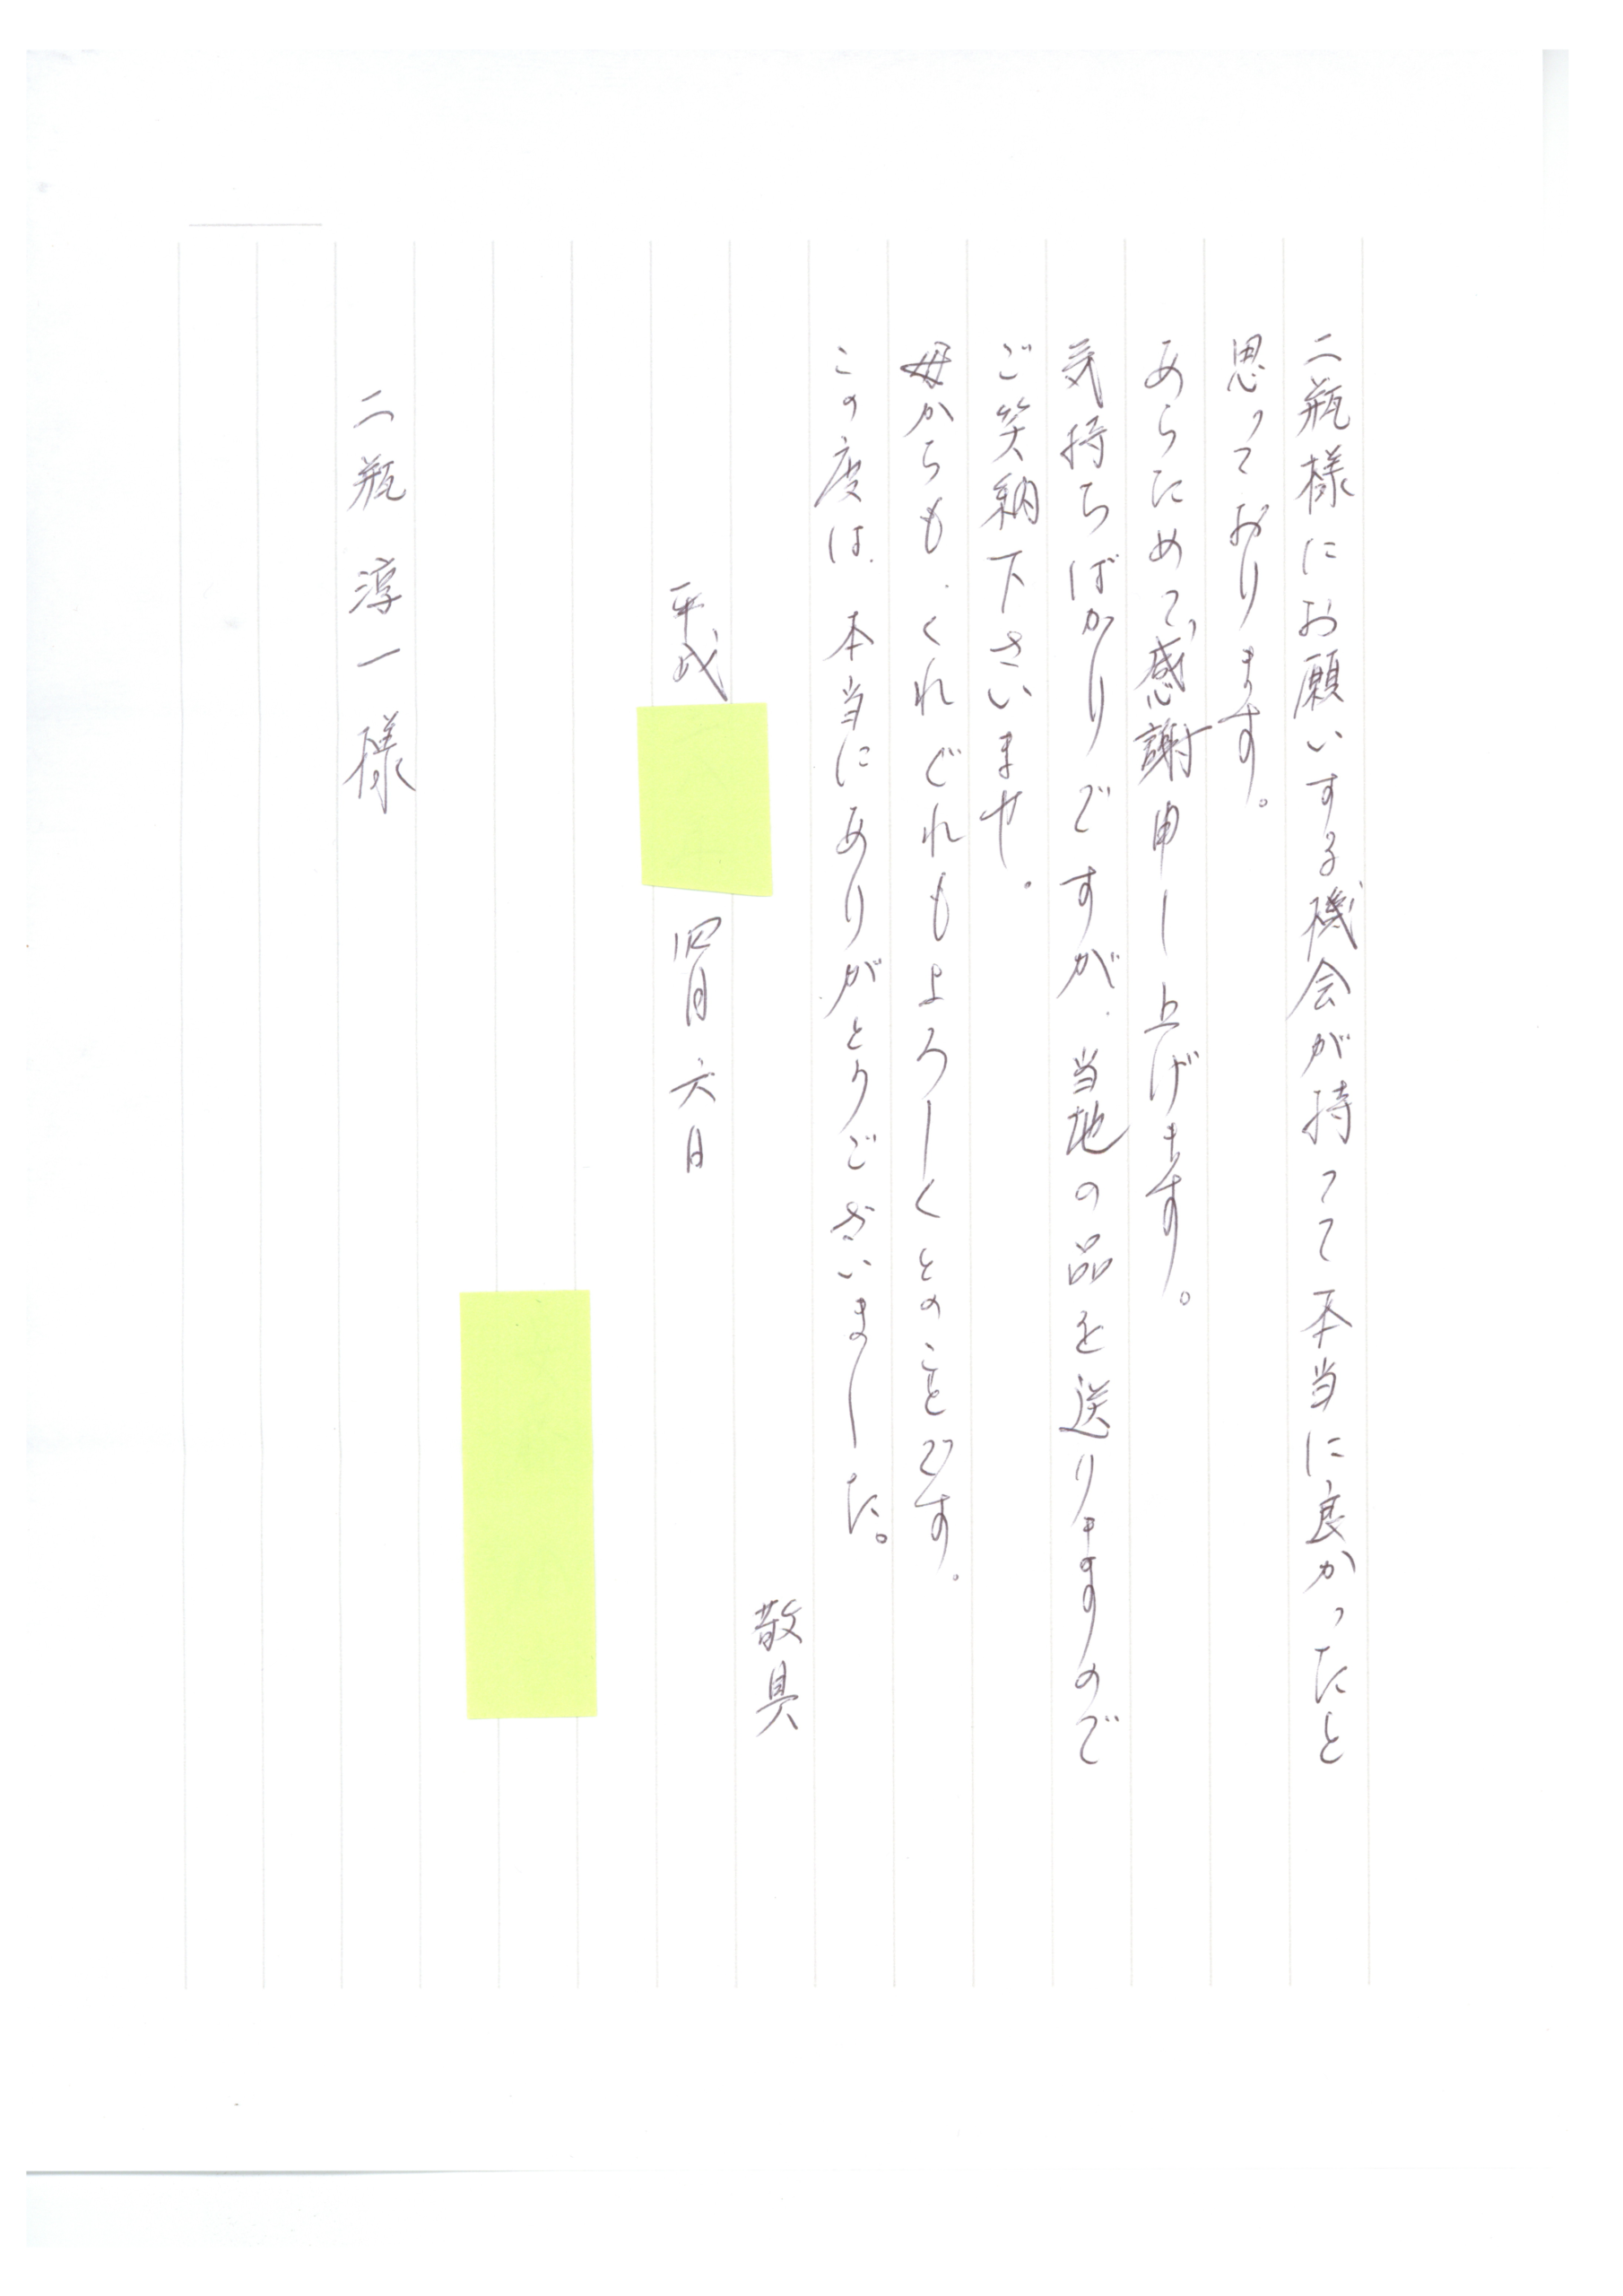 二瓶様にお願いする機会が持って本当に良かったと
思っております。
あらためて、感謝申し上げます。
気持ちばかりですが、当地の品を送りますので
ご笑納下さいませ。
母からも、くれぐれもよろしくとのことです。
この度は、本当にありがとうございました。
敬具
平成
四月六日
二瓶淳一様